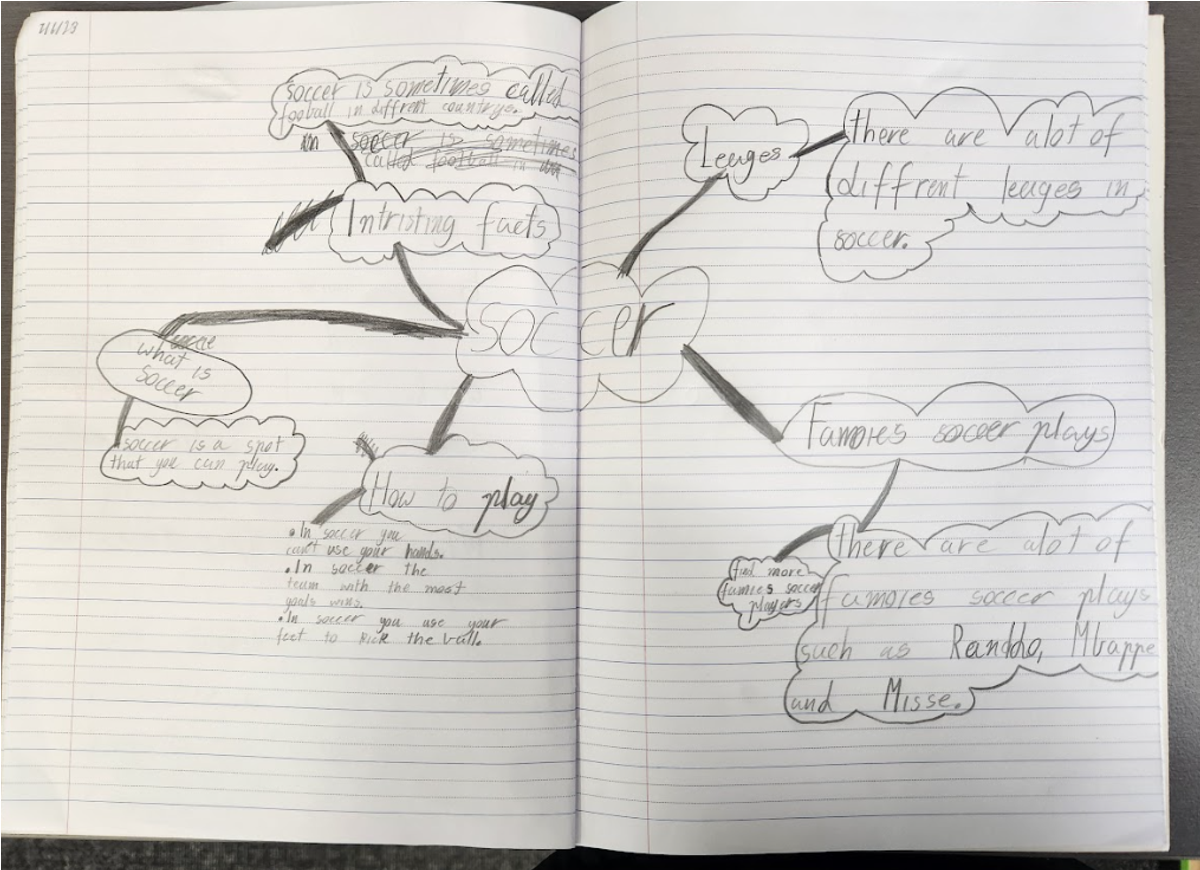 soccer is sometimes called
fooball in diffrent countrys.
in soccer is sometimes
called football in
Intristing facts
soccer
what is
soccer
soccer is a spot
that you can play.
How to play
• In soccer you
can't use your hands.
• In soccer the
team with the most
goals wins.
• In soccer you use your
feet to kick the ball.
Leuges
there are alot of
diffrent leuges in
soccer.
Famoies soccer plays
there are alot of
famoies soccer plays
such as Reanldho, Mbappe
and Misse.
find more
famies soccer
players